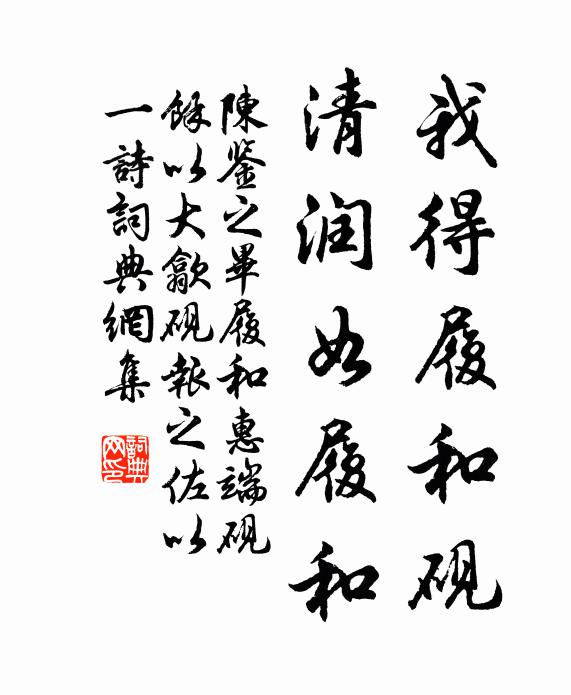 我得履和硯
清润如履和
陳鉴之畢履和惠端硯
餘以大歙硯報之佐以
一詩詞典網集
詞典网印